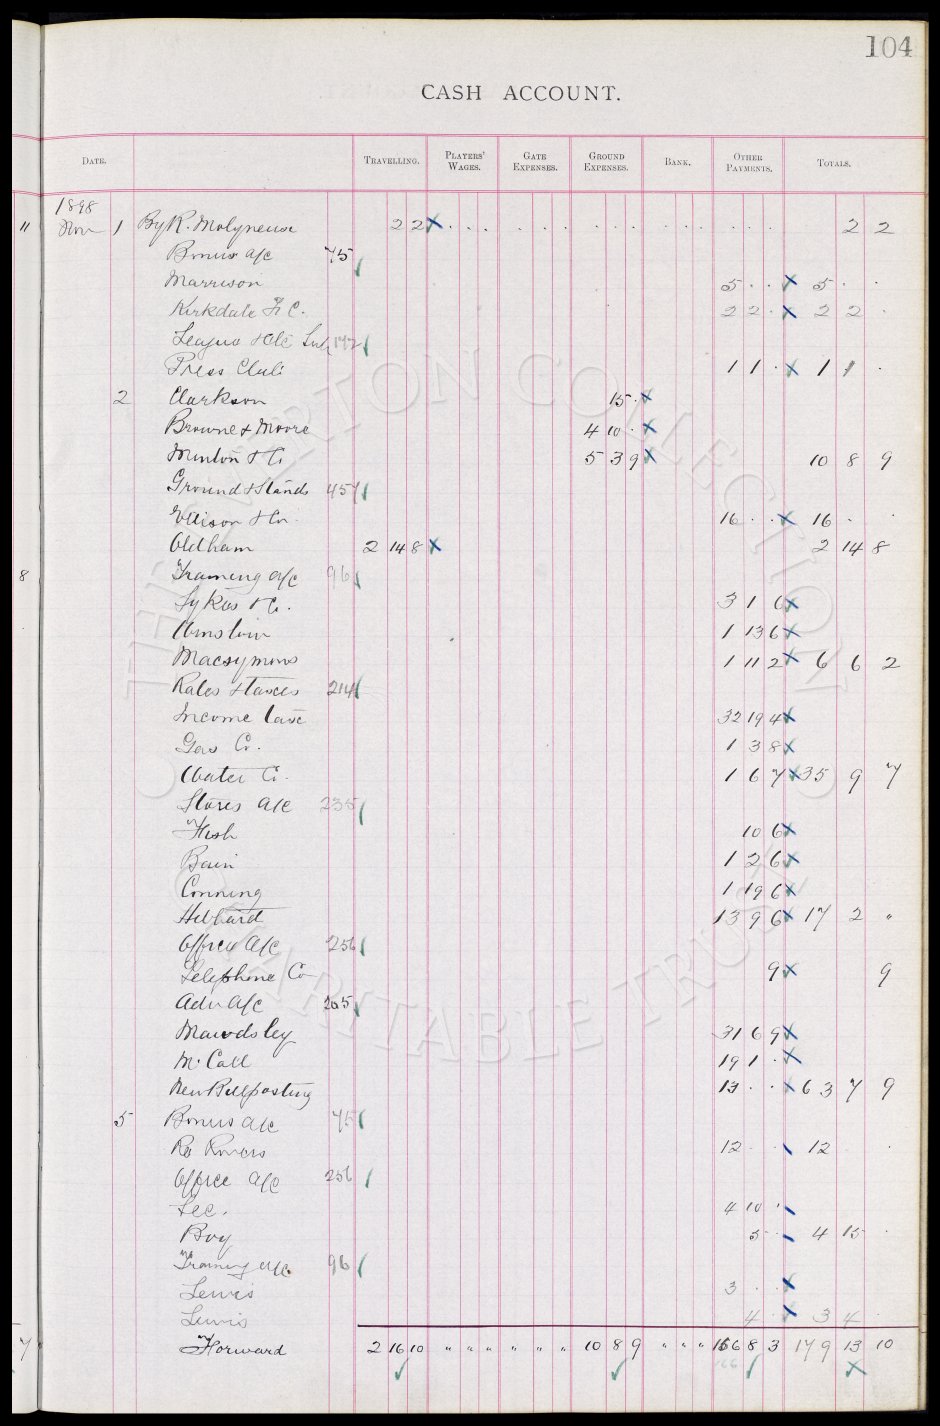 104
CASH ACCOUNT.
DATE. TRAVELLING. PLAYERS' WAGES. GATE EXPENSES. GROUND EXPENSES. BANK. OTHER PAYMENTS. TOTALS.
1898
" Nov 1 By R. Molyneux 2 2 2 2
Bonus a/c 75
Marrison 5 . . 5 . .
Kirkdale F. C. 2 2 . 2 2 .
League &c 172
Press Club 1 1 . 1 1 .
2 Clarkson 15 .
Browne & Moore 4 10 .
Minton & Co 5 3 9 10 8 9
Ground & Stands 457
Ellison & Co. 16 . . 16 . .
Oldham 2 14 8 2 14 8
8 Training a/c 96
Sykes & Co. 3 1 6
1 13 6
Macsymons 1 11 2 6 6 2
Rates & taxes 214
Income tax 32 19 4
Gas Co. 1 3 8
Water Co. 1 6 7 35 9 7
Stores a/c 235
Fish 10 6
Bain 1 2 6
Conning 1 19 6
Hibbard 13 9 6 17 2 "
Office a/c 256
Telephone Co 9 9
Adv a/c 205
Mawdsley 31 6 9
McCall 19 1 .
New Billposting 13 . . 63 7 9
5 Bonus a/c 75
Ro Rovers 12 . . 12 . .
Office a/c 256
Sec. 4 10 .
Boy 5 . 4 15 .
Training a/c. 96
Lewis 3 . .
Lewis 4 . 3 4 .
7 Forward 2 16 10 " " " " " " 10 8 9 " " " 166 8 3 179 13 10
166
THE EVERTON COLLECTION
CHARITABLE TRUST